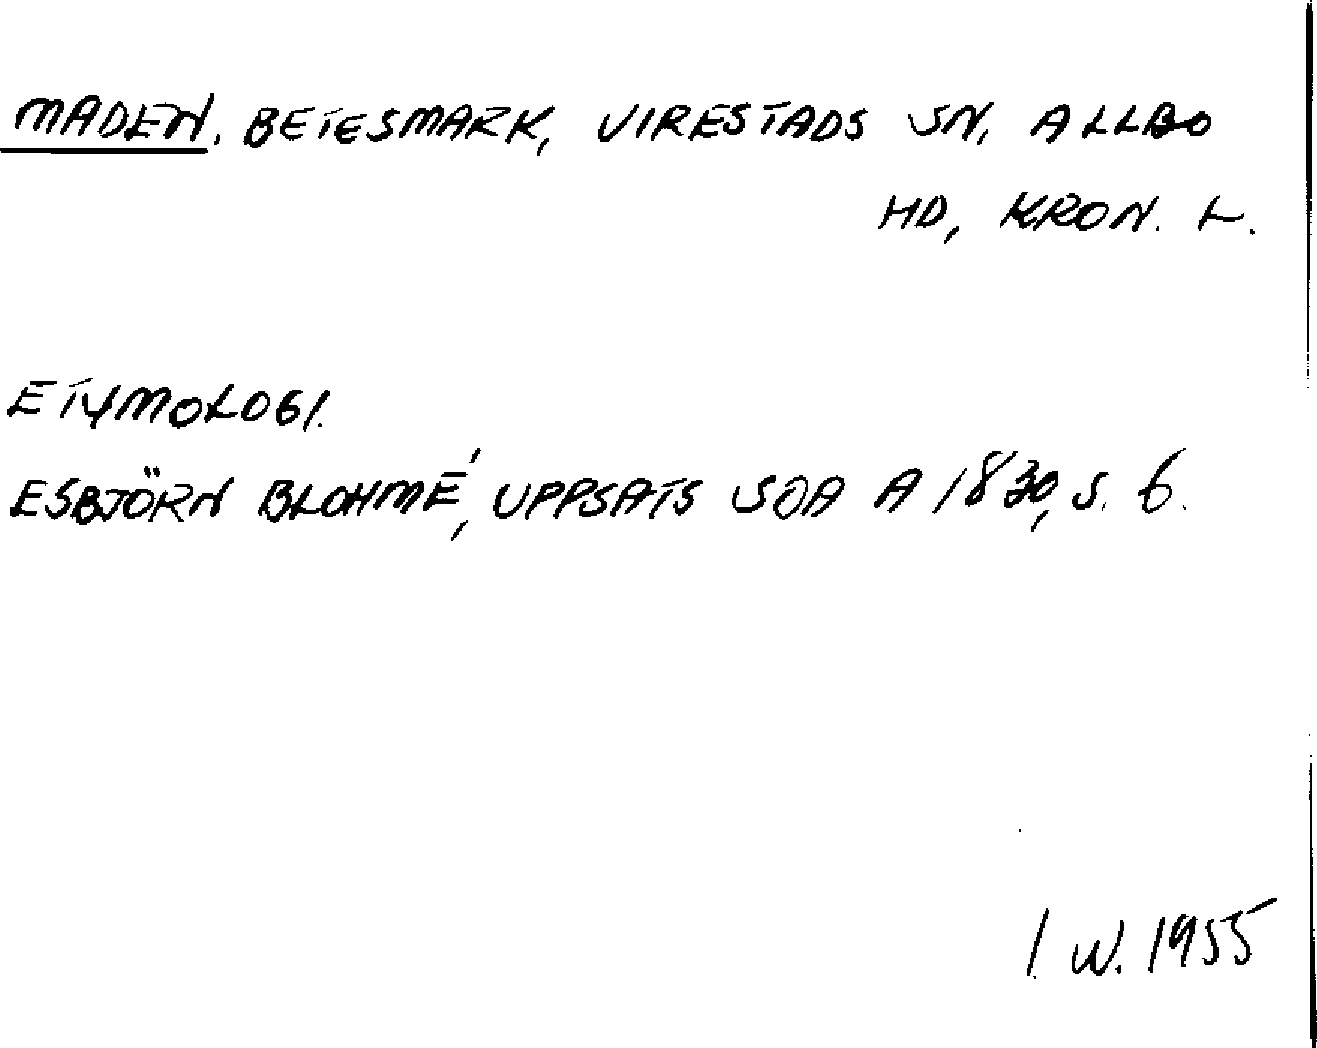 MADEN. BETESMARK, VIRESTADS SN, ALLBO
HD, KRON. L.
ETYMOLOGI.
ESBJÖRN BLOHMÉ, UPPSATS SOA A 1830, S. 6.
I W. 1955